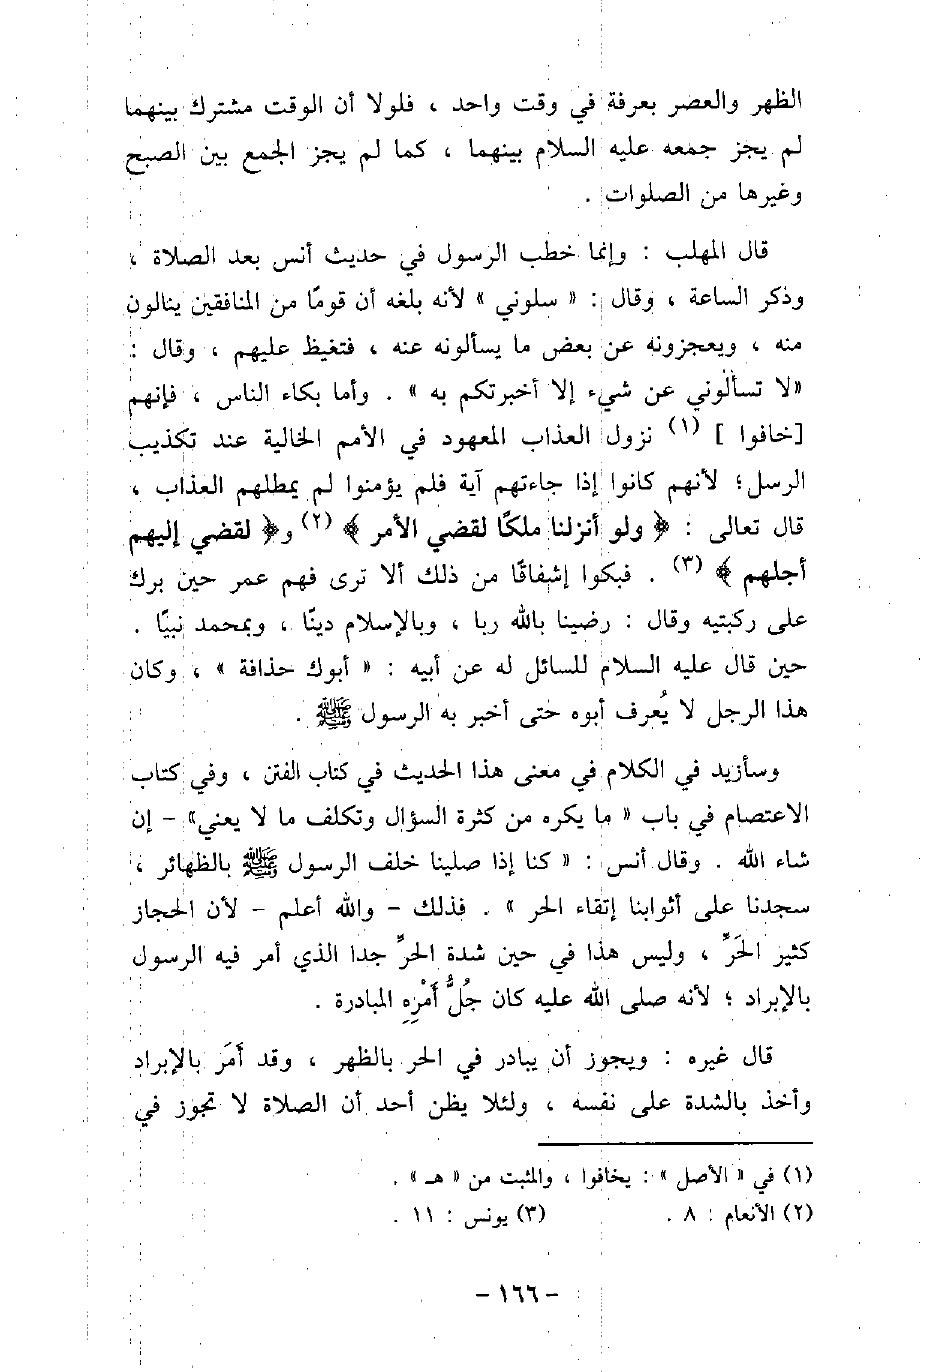 الظهر والعصر بعرفة في وقت واحد ، فلولا أن الوقت مشترك بينهما
لم يجز جمعه عليه السلام بينهما ، كما لم يجز الجمع بين الصبح
وغيرها من الصلوات .
قال المهلب : وإنما خطب الرسول في حديث أنس بعد الصلاة ،
وذكر الساعة ، وقال : « سلوني » لأنه بلغه أن قومًا من المنافقين ينالون
منه ، ويعجزونه عن بعض ما يسألونه عنه ، فتغيظ عليهم ، وقال :
«لا تسألوني عن شيء إلا أخبرتكم به » . وأما بكاء الناس ، فإنهم
[خافوا ] (١) نزول العذاب المعهود في الأمم الخالية عند تكذيب
الرسل؛ لأنهم كانوا إذا جاءتهم آية فلم يؤمنوا لم يمطلهم العذاب ،
قال تعالى : ﴿ ولو أنزلنا ملكًا لقضي الأمر ﴾ (٢) و﴿ لقضي إليهم
أجلهم ﴾ (٣) . فبكوا إشفاقًا من ذلك ألا ترى فهم عمر حين برك
على ركبتيه وقال : رضينا بالله ربا ، وبالإسلام دينًا ، وبمحمد نبيًا .
حين قال عليه السلام للسائل له عن أبيه : « أبوك حذافة » ، وكان
هذا الرجل لا يُعرف أبوه حتى أخبر به الرسول ﷺ .
وسأزيد في الكلام في معنى هذا الحديث في كتاب الفتن ، وفي كتاب
الاعتصام في باب « ما يكره من كثرة السؤال وتكلف ما لا يعني» - إن
شاء الله . وقال أنس : « كنا إذا صلينا خلف الرسول ﷺ بالظهائر ،
سجدنا على أثوابنا إتقاء الحر » . فذلك - والله أعلم - لأن الحجاز
كثير الحَرِّ ، وليس هذا في حين شدة الحرِّ جدا الذي أمر فيه الرسول
بالإبراد ؛ لأنه صلى الله عليه كان جُلُّ أَمْرِهِ المبادرة .
قال غيره : ويجوز أن يبادر في الحر بالظهر ، وقد أَمَر بالإبراد
وأخذ بالشدة على نفسه ، ولئلا يظن أحد أن الصلاة لا تجوز في
(١) في « الأصل » : يخافوا ، والمثبت من « هـ » .
(٢) الأنعام : ٨ . (٣) يونس : ١١ .
- ١٦٦ -